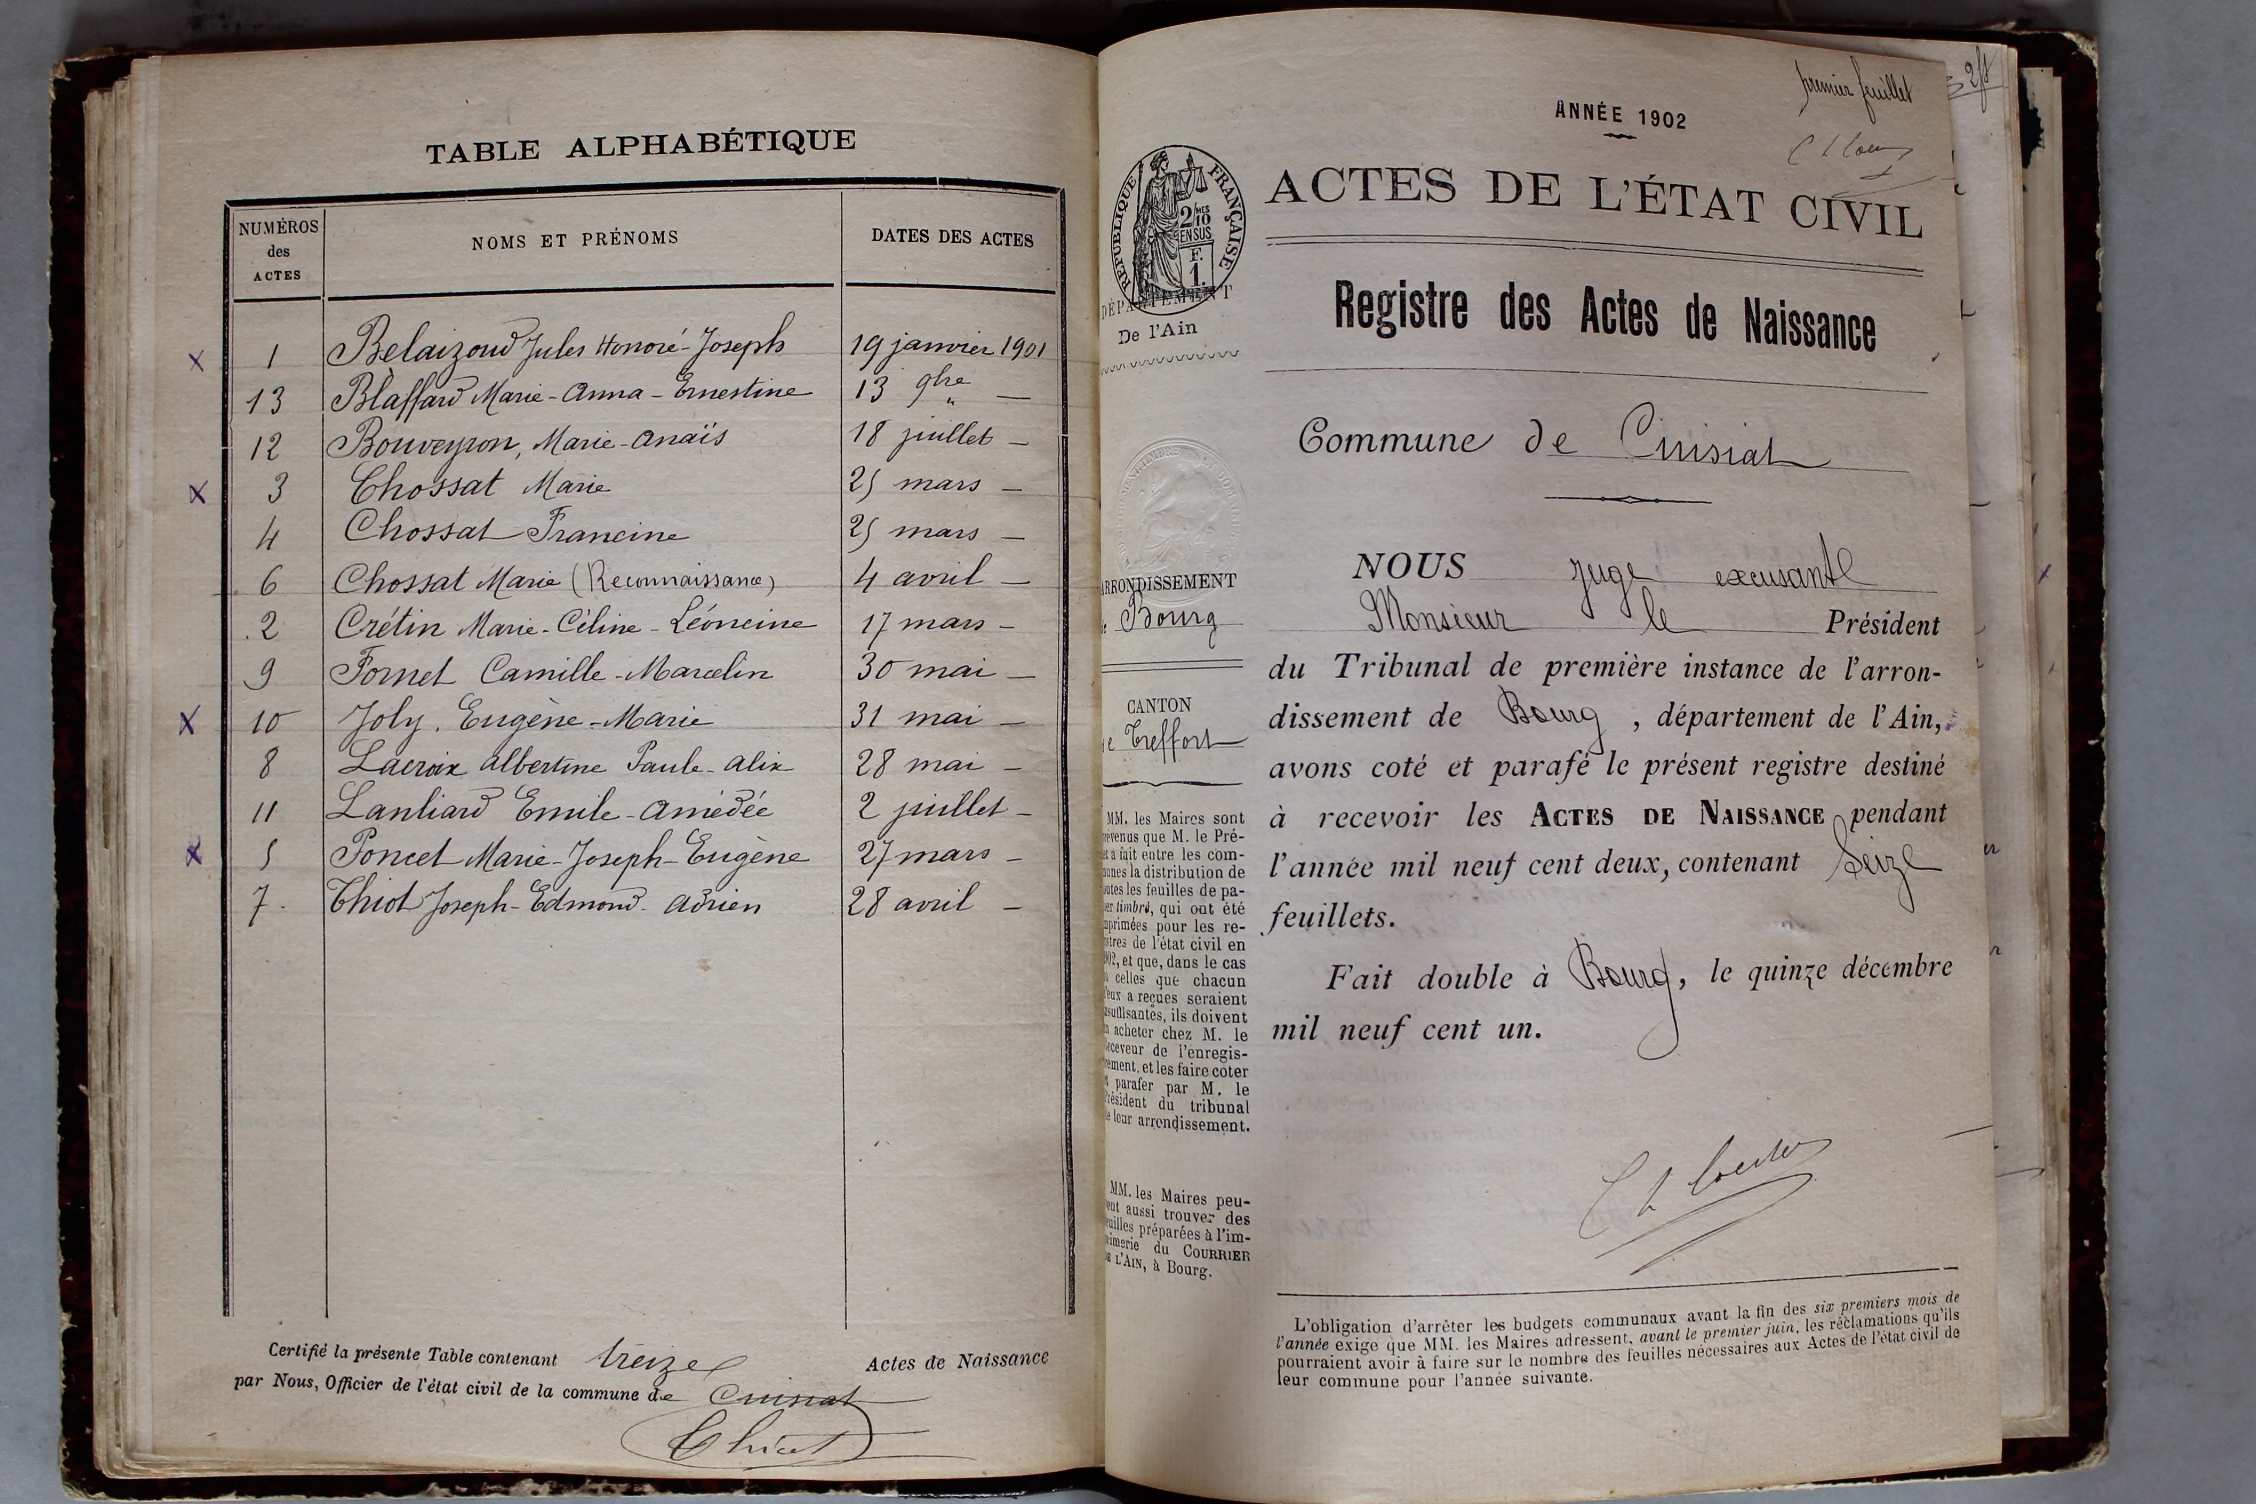 TABLE ALPHABÉTIQUE
NUMÉROS
des
ACTES
NOMS ET PRÉNOMS
DATES DES ACTES
1 Belaizoud Jules Honoré-Joseph 19 janvier 1901
13 Blaffard Marie-Anna-Ernestine 13 9bre " —
12 Bouveyron, Marie-Anaïs 18 juillet —
3 Chossat Marie 25 mars —
4 Chossat Francine 25 mars —
6 Chossat Marie (Reconnaissance) 4 avril —
2 Crétin Marie-Céline-Léoncine 17 mars —
9 Fornet Camille-Marcelin 30 mai —
10 Joly. Eugène-Marie 31 mai —
8 Lacroix Albertine Paule-Alix 28 mai —
11 Lanliard Emile-Amédée 2 juillet —
5 Poncet Marie-Joseph-Eugène 27 mars —
7 Thiot Joseph-Edmond-Adrien 28 avril —
Certifié la présente Table contenant treize Actes de Naissance
par Nous, Officier de l'état civil de la commune de Cuisiat
Thiot
premier feuillet
ANNÉE 1902
ACTES DE L'ÉTAT CIVIL
RÉPUBLIQUE FRANÇAISE
2/10
EN SUS
F.
1.
DÉPARTEMENT
De l'Ain
Registre des Actes de Naissance
Commune de Cuisiat
ARRONDISSEMENT
Bourg
CANTON
de Treffort
MM. les Maires sont
prévenus que M. le Pré-
fet a fait entre les com-
munes la distribution de
toutes les feuilles de pa-
pier timbré, qui ont été
imprimées pour les re-
gistres de l'état civil en
1902, et que, dans le cas
où celles que chacun
d'eux a reçues seraient
insuffisantes, ils doivent
en acheter chez M. le
Receveur de l'enregis-
trement, et les faire coter
et parafer par M. le
Président du tribunal
de leur arrondissement.
MM. les Maires peu-
vent aussi trouver des
feuilles préparées à l'im-
primerie du COURRIER
DE L'AIN, à Bourg.
NOUS Juge excusant
Monsieur le Président
du Tribunal de première instance de l'arron-
dissement de Bourg, département de l'Ain,
avons coté et parafé le présent registre destiné
à recevoir les ACTES DE NAISSANCE pendant
l'année mil neuf cent deux, contenant Seize
feuillets.
Fait double à Bourg, le quinze décembre
mil neuf cent un.
L'obligation d'arrêter les budgets communaux avant la fin des six premiers mois de
l'année exige que MM. les Maires adressent, avant le premier juin, les réclamations qu'ils
pourraient avoir à faire sur le nombre des feuilles nécessaires aux Actes de l'état civil de
leur commune pour l'année suivante.